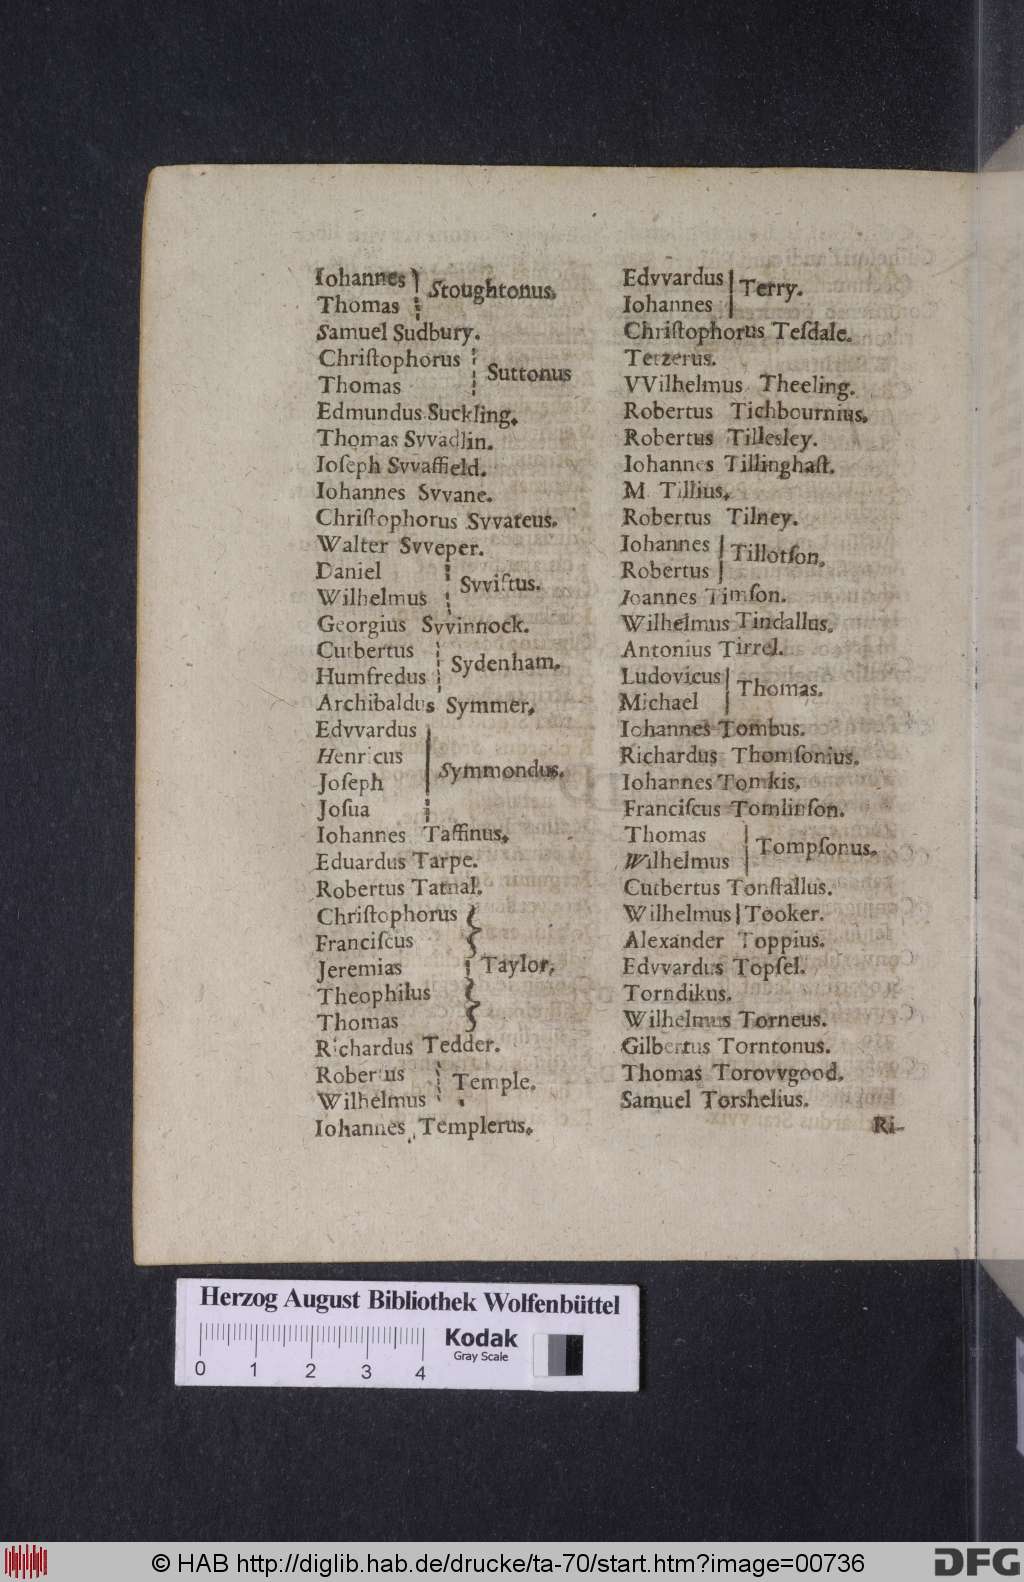 Iohannes
Stoughtonus.
Thomas
Samuel Sudbury.
Chriſtophorus
Suttonus
Thomas
Edmundus Suckling.
Thomas Svvadlin.
Ioſeph Svvaffield.
Iohannes Svvane.
Chriſtophorus Svvateus.
Walter Svveper.
Daniel
Svviftus.
Wilhelmus
Georgius Svvinnock.
Cutbertus
Sydenham.
Humfredus
Archibaldus Symmer.
Edvvardus
Henricus
Symmondus.
Joſeph
Joſua
Iohannes Taffinus.
Eduardus Tarpe.
Robertus Tatnal.
Chriſtophorus
Franciſcus
Jeremias
Taylor.
Theophilus
Thomas
Richardus Tedder.
Robertus
Temple.
Wilhelmus
Iohannes Templerus.
Edvvardus
Terry.
Iohannes
Chriſtophorus Teſdale.
Tetzerus.
VVilhelmus Theeling.
Robertus Tichbournius.
Robertus Tillesley.
Iohannes Tillinghaſt.
M. Tillius.
Robertus Tilney.
Iohannes
Tillotſon.
Robertus
Ioannes Timſon.
Wilhelmus Tindallus.
Antonius Tirrel.
Ludovicus
Thomas.
Michael
Iohannes Tombus.
Richardus Thomſonius.
Iohannes Tomkis.
Franciſcus Tomlinſon.
Thomas
Tompſonus.
Wilhelmus
Cutbertus Tonſtallus.
Wilhelmus Tooker.
Alexander Toppius.
Edvvardus Topſel.
Torndikus.
Wilhelmus Torneus.
Gilbertus Torntonus.
Thomas Torovvgood.
Samuel Torshelius.
Ri-
Herzog August Bibliothek Wolfenbüttel
0 1 2 3 4
Kodak
Gray Scale
© HAB http://diglib.hab.de/drucke/ta-70/start.htm?image=00736
DFG